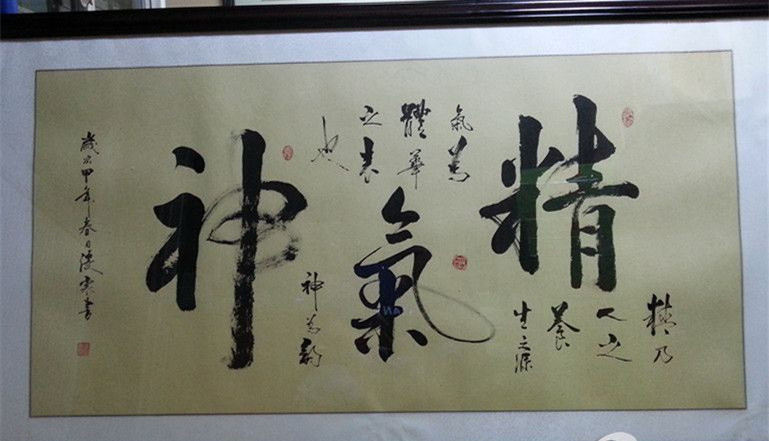 精
精乃
人之
養
生之源
氣為
體華
之表
也
氣
神為韵
神
歲次甲午春日凌寒書